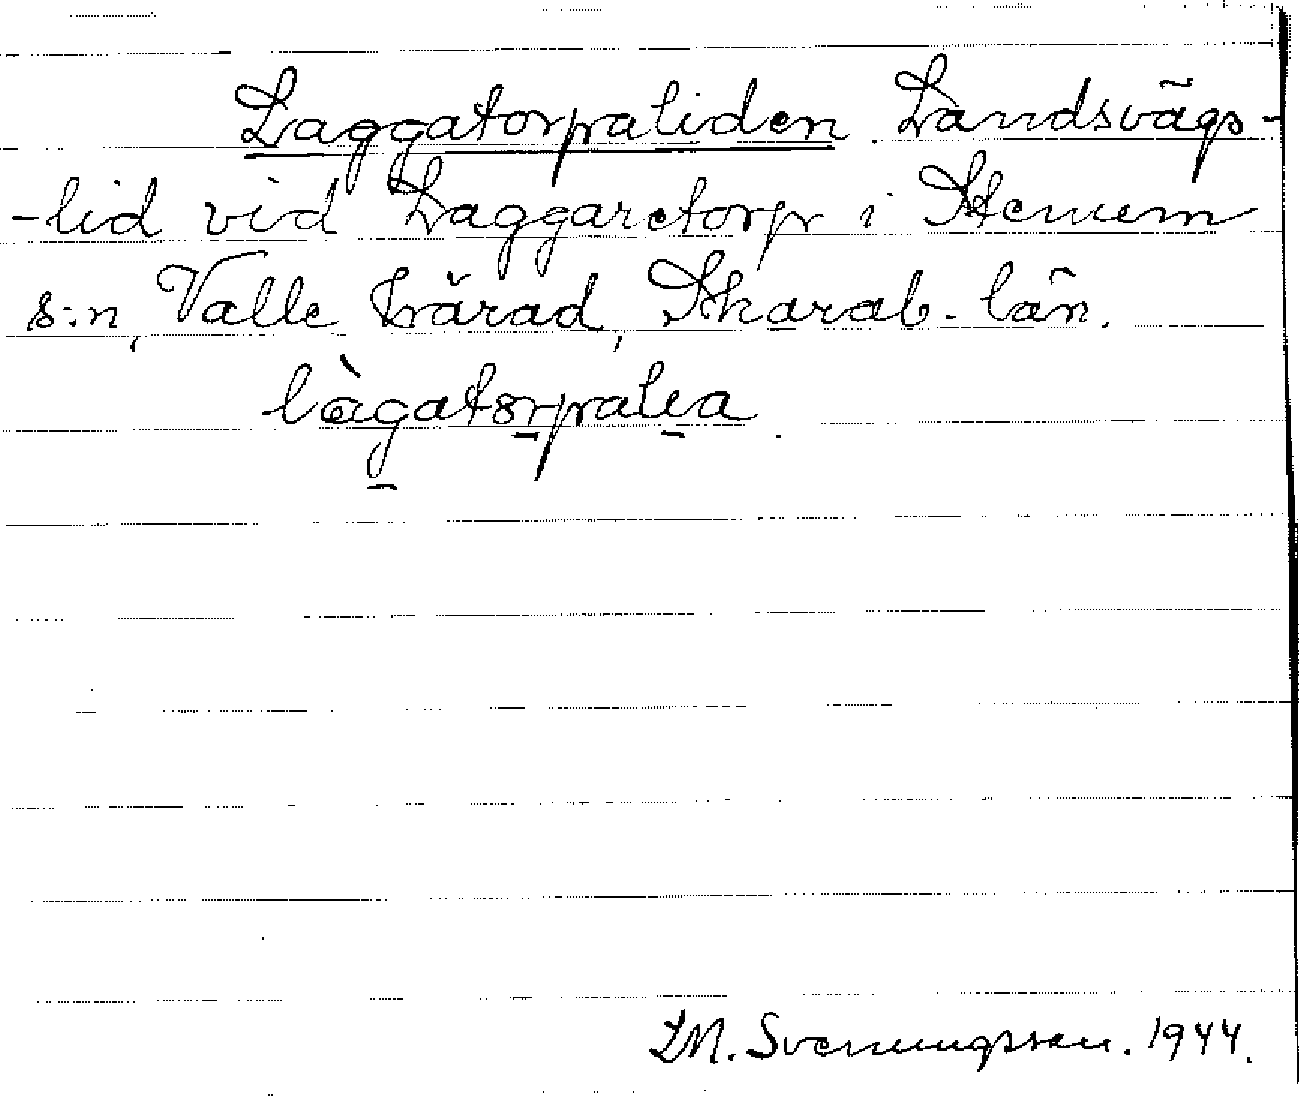 Laggatorpaliden Landsvägs-
-lid vid Laggaretorp i Stenum
s:n, Valle härad, Skarab. län.
làgatorpalia
LM. Svenungsson. 1944.